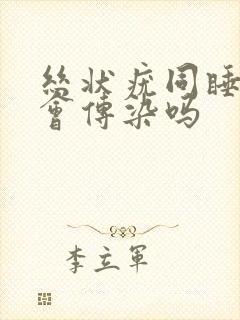 丝状疣同睡
会传染吗
李立军